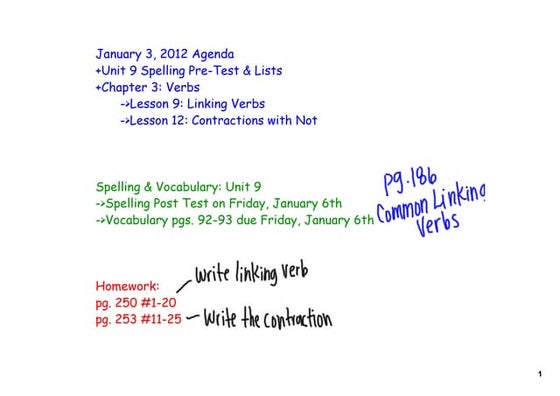 January 3, 2012 Agenda
+Unit 9 Spelling Pre-Test & Lists
+Chapter 3: Verbs
->Lesson 9: Linking Verbs
->Lesson 12: Contractions with Not
Spelling & Vocabulary: Unit 9
->Spelling Post Test on Friday, January 6th
->Vocabulary pgs. 92-93 due Friday, January 6th
pg. 186
Common Linking
Verbs
Homework:
pg. 250 #1-20
Write linking verb
pg. 253 #11-25
Write the contraction
1